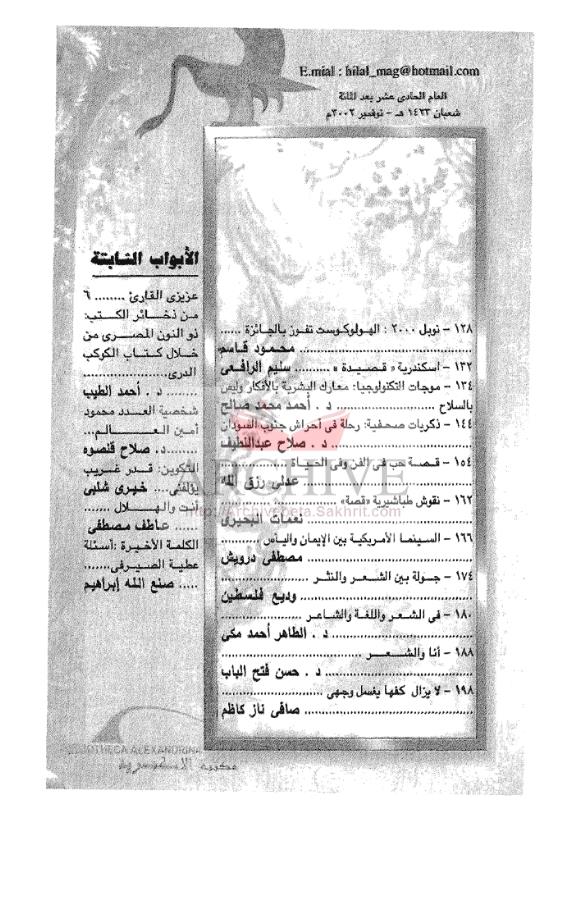 E.mial : hilal_mag@hotmail.com
العام الحادى عشر بعد المائة
شعبان ١٤٢٣ هـ - نوفمبر ٢٠٠٢م
١٢٨ - نوبل ٢٠٠٠ : الهولوكوست تفوز بالجائزة ......
محمود قاسم
١٣٢ - اسكندرية « قصيدة » ......... سليم الرافعى
١٣٤ - موجات التكنولوجيا: معارك البشرية بالأفكار وليس
بالسلاح ................ د . أحمد محمد صالح
١٤٤ - ذكريات صحفية: رحلة فى أحراش جنوب السودان
د. صلاح عبداللطيف
١٥٤ - قصة حب فى الفن وفى الحياة
عدلى رزق الله
١٦٢ - نقوش طباشيرية «قصة»
نعمات البحيرى
١٦٦ - السينما الأمريكية بين الإيمان واليأس
مصطفى درويش
١٧٤ - جولة بين الشعر والنثر
وديع فلسطين
١٨٠ - فى الشعر واللغة والشاعر
د . الطاهر أحمد مكى
١٨٨ - أنا والشعر
د . حسن فتح الباب
١٩٨ - لا يزال كفها يغسل وجهى
صافى ناز كاظم
الأبواب الثابتة
عزيزى القارئ ........ ٦
من ذخائر الكتب:
ذو النون المصرى من
خلال كتاب الكوكب
الدرى
د . أحمد الطيب
شخصية العدد محمود
أمين العالم...
د. صلاح قنصوه
التكوين: قدر غريب
يؤلفنى ... خيرى شلبى
أنت والهلال
عاطف مصطفى
الكلمة الأخيرة :أسئلة
عطية الصيرفى
صنع الله إبراهيم
ARCHIVE
http://Archivebeta.Sakhrit.com
BIBLIOTHECA ALEXANDRINA
مكتبة الاسكندرية